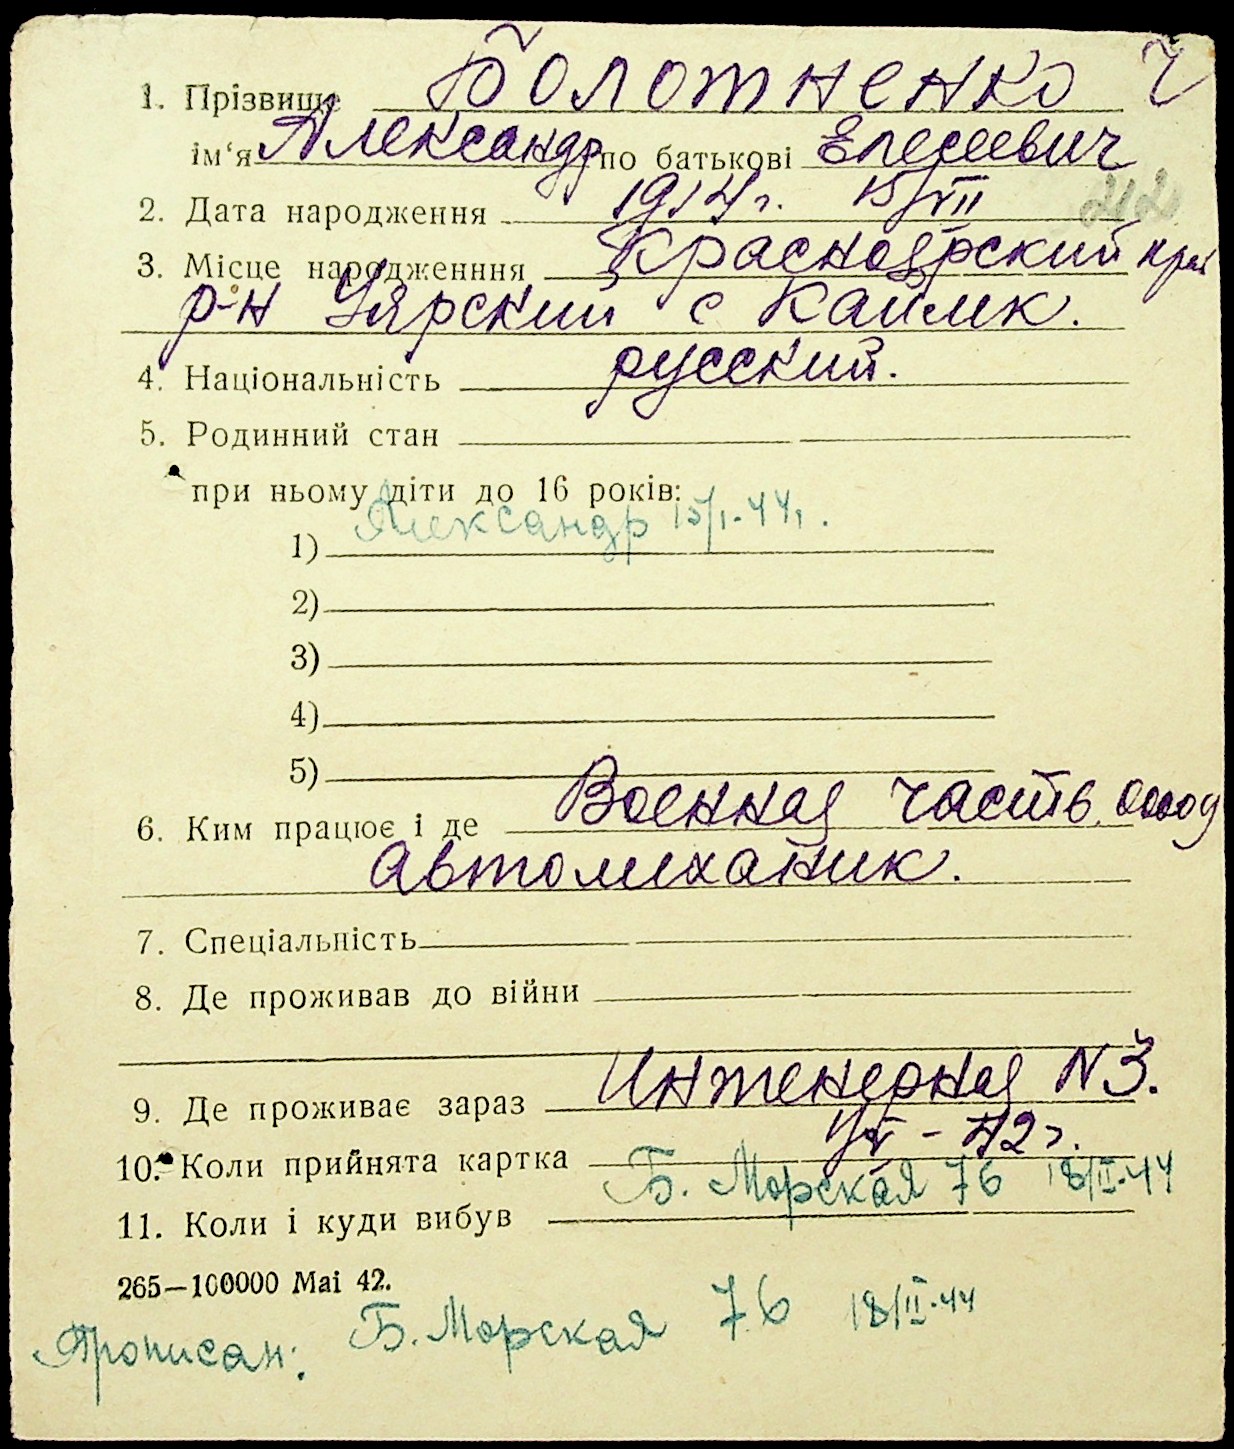 1. Прізвище Болотненко
ім'я Александр по батькові Елесеевич
2. Дата народження 1914 г. 15/VII
212
3. Місце народженння Красноярский край
р-н Уярский с Каймк.
4. Національність русский.
5. Родинний стан
при ньому діти до 16 років:
1) Александр 15/I-44.
2)
3)
4)
5)
6. Ким працює і де Военная часть
автомиханик.
7. Спеціальність
8. Де проживав до війни
9. Де проживає зараз Инженерная N 3.
10. Коли прийнята картка
11. Коли і куди вибув Б. Морская 76 18/II-44
265—100000 Mai 42.
Прописан: Б. Морская 76 18/II-44